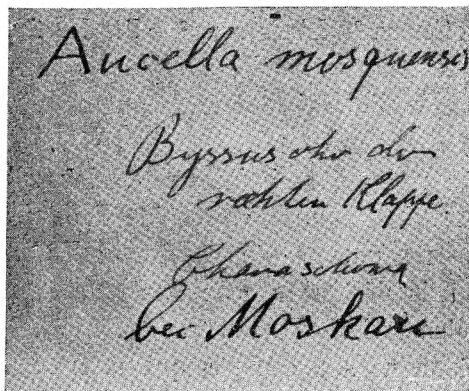 Aucella mosquensis
Byssusohr der
rechten Klappe.
bei Moskau